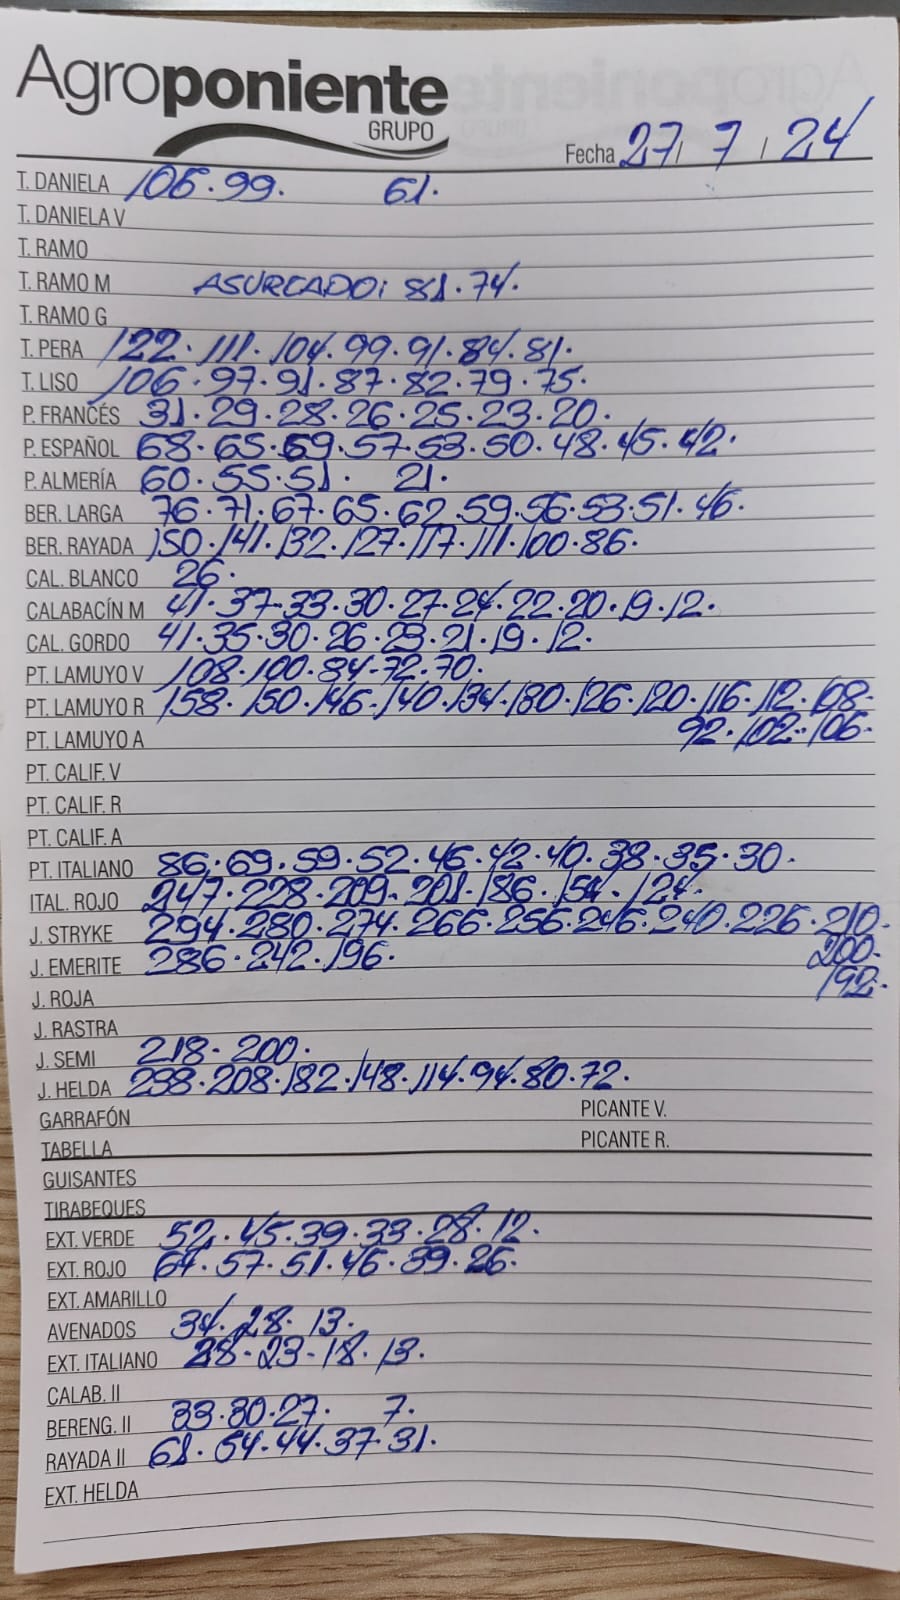 Agroponiente
GRUPO
Fecha 27/ 7 / 24
T. DANIELA 106.99. 61.
T. DANIELA V
T. RAMO
T. RAMO M ASURCADO: 81.74.
T. RAMO G
T. PERA 122.111.104.99.91.84.81.
T. LISO 106.97.91.87.82.79.75.
P. FRANCÉS 31.29.28.26.25.23.20.
P. ESPAÑOL 68.65.59.57.53.50.48.45.42.
P. ALMERÍA 60.55.51. 21.
BER. LARGA 76.71.67.65.62.59.56.53.51.46.
BER. RAYADA 150.141.132.127.117.111.100.86.
CAL. BLANCO 26.
CALABACÍN M 41.37.33.30.27.24.22.20.19.12.
CAL. GORDO 41.35.30.26.23.21.19.12.
PT. LAMUYO V 108.100.84.72.70.
PT. LAMUYO R 158.150.146.140.134.130.126.120.116.112.108.
92.102.106.
PT. LAMUYO A
PT. CALIF. V
PT. CALIF. R
PT. CALIF. A
PT. ITALIANO 86.69.59.52.46.42.40.38.35.30.
ITAL. ROJO 247.228.209.201.186.154.124.
J. STRYKE 294.280.274.266.256.246.240.226.210.
200.
192.
J. EMERITE 286.242.196.
J. ROJA
J. RASTRA
J. SEMI 218.200.
J. HELDA 238.208.182.148.114.94.80.72.
GARRAFÓN PICANTE V.
TABELLA PICANTE R.
GUISANTES
TIRABEQUES
EXT. VERDE 52.45.39.33.28.12.
EXT. ROJO 64.57.51.46.39.26.
EXT. AMARILLO
AVENADOS 34.28.13.
EXT. ITALIANO 28.23.18.13.
CALAB. II
BERENG. II 33.30.27. 7.
RAYADA II 61.54.44.37.31.
EXT. HELDA